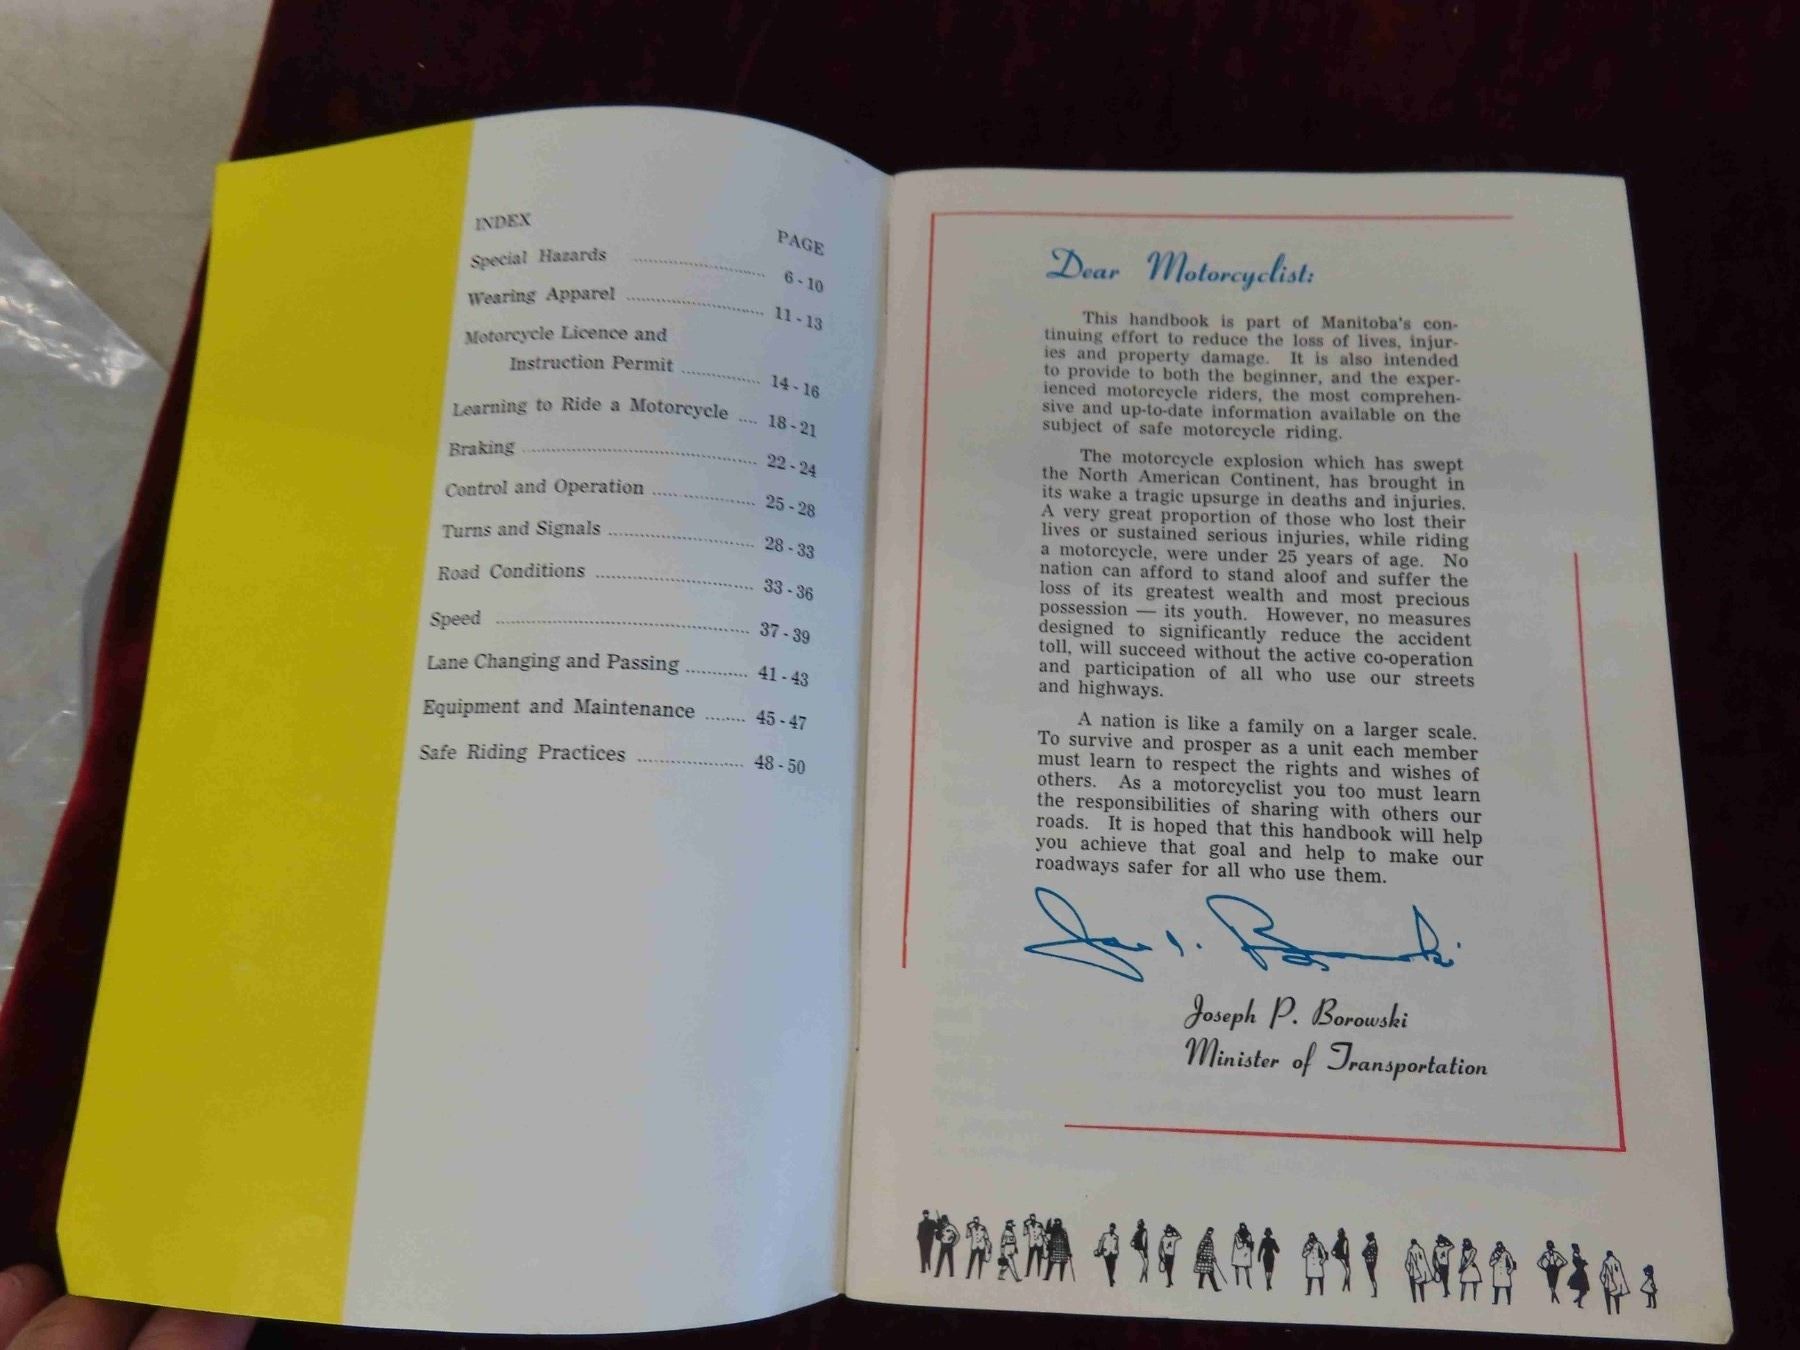 INDEX
PAGE
Special Hazards ........................ 6 - 10
Wearing Apparel ........................ 11 - 13
Motorcycle Licence and
Instruction Permit .............. 14 - 16
Learning to Ride a Motorcycle .... 18 - 21
Braking ........................................ 22 - 24
Control and Operation .................. 25 - 28
Turns and Signals ........................ 28 - 33
Road Conditions .......................... 33 - 36
Speed .......................................... 37 - 39
Lane Changing and Passing .......... 41 - 43
Equipment and Maintenance ........ 45 - 47
Safe Riding Practices .................. 48 - 50
Dear Motorcyclist:
This handbook is part of Manitoba's con-
tinuing effort to reduce the loss of lives, injur-
ies and property damage. It is also intended
to provide to both the beginner, and the exper-
ienced motorcycle riders, the most comprehen-
sive and up-to-date information available on the
subject of safe motorcycle riding.
The motorcycle explosion which has swept
the North American Continent, has brought in
its wake a tragic upsurge in deaths and injuries.
A very great proportion of those who lost their
lives or sustained serious injuries, while riding
a motorcycle, were under 25 years of age. No
nation can afford to stand aloof and suffer the
loss of its greatest wealth and most precious
possession — its youth. However, no measures
designed to significantly reduce the accident
toll, will succeed without the active co-operation
and participation of all who use our streets
and highways.
A nation is like a family on a larger scale.
To survive and prosper as a unit each member
must learn to respect the rights and wishes of
others. As a motorcyclist you too must learn
the responsibilities of sharing with others our
roads. It is hoped that this handbook will help
you achieve that goal and help to make our
roadways safer for all who use them.
Joe P. Borowski
Joseph P. Borowski
Minister of Transportation